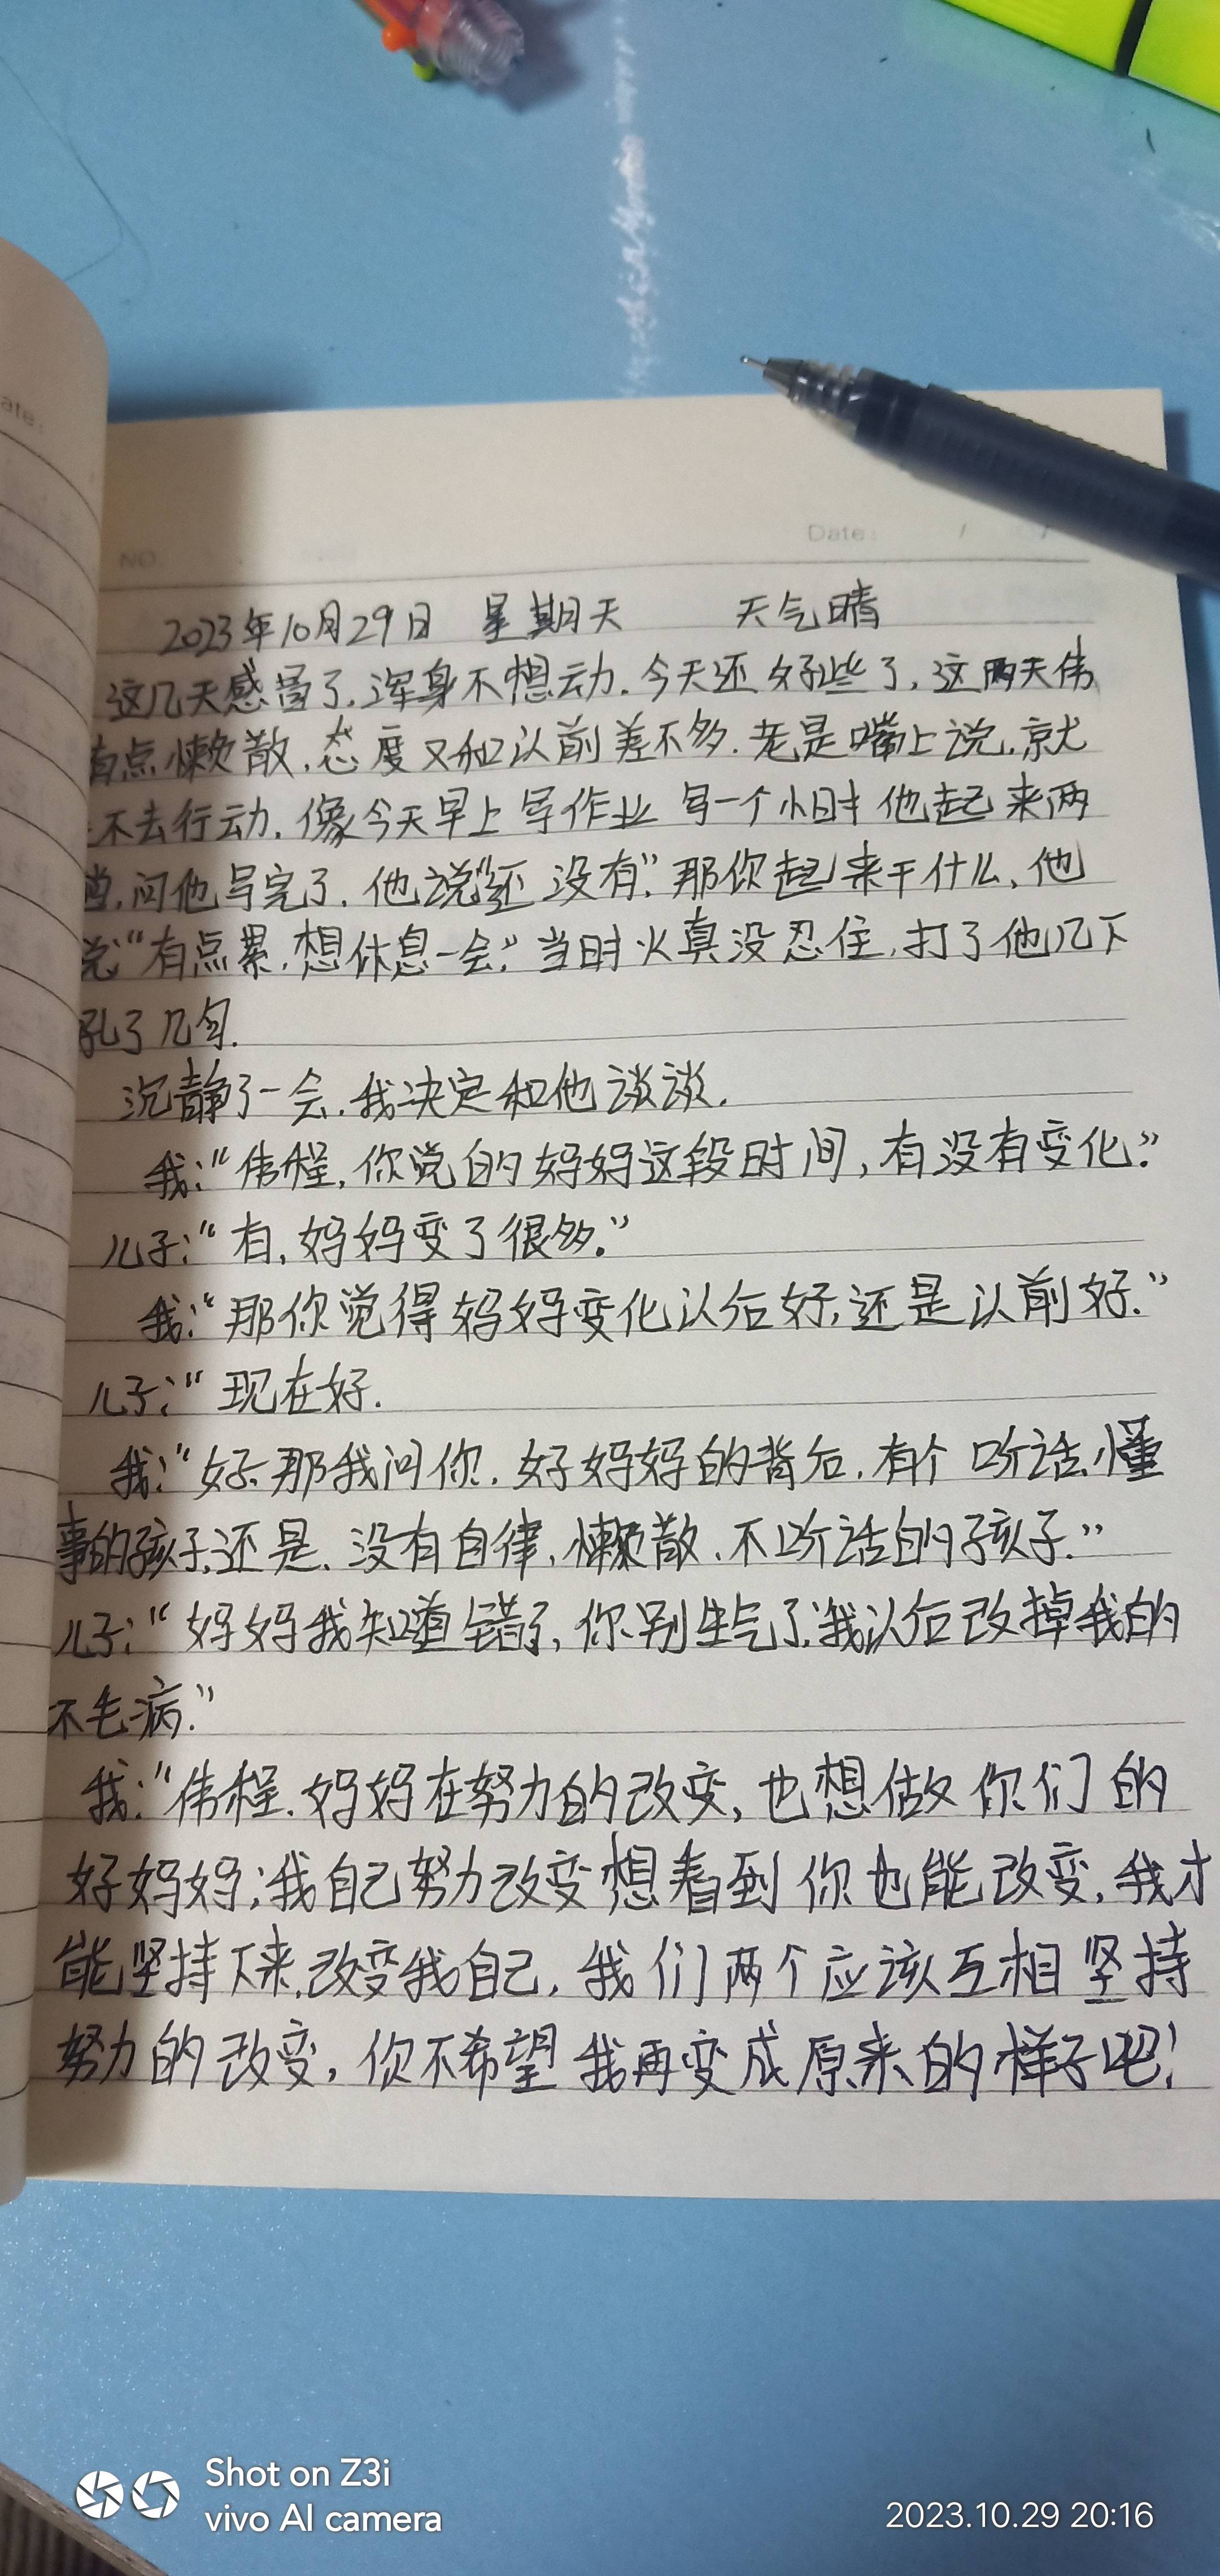 ate:
NO.
Date: / /
2023年10月29日 星期天 天气晴
这几天感冒了.浑身不想动.今天还好些了,这两天伟
有点懒散,态度又和以前差不多.老是嘴上说,就
不去行动.像今天早上写作业 写一个小时他起来两
问他写完了.他说"还没有".那你起来干什么,他
说"有点累,想休息一会."当时火真没忍住,打了他几下
了几句.
沉静了一会.我决定和他谈谈.
我:"伟程,你觉的妈妈这段时间,有没有变化."
儿子:"有,妈妈变了很多."
我:"那你觉得妈妈变化以后好,还是以前好."
儿子:"现在好.
我:"好.那我问你.好妈妈的背后.有个听话.懂
事的孩子,还是.没有自律,懒散.不听话的孩子."
儿子:"妈妈我知道错了,你别生气了.我以后改掉我的
毛病."
我:"伟程.妈妈在努力的改变,也想做你们的
好妈妈;我自己努力改变想看到你也能改变,我才
能坚持下来.改变我自己,我们两个应该互相坚持
努力的改变,你不希望我再变成原来的样子吧!
Shot on Z3i
vivo AI camera
2023.10.29 20:16